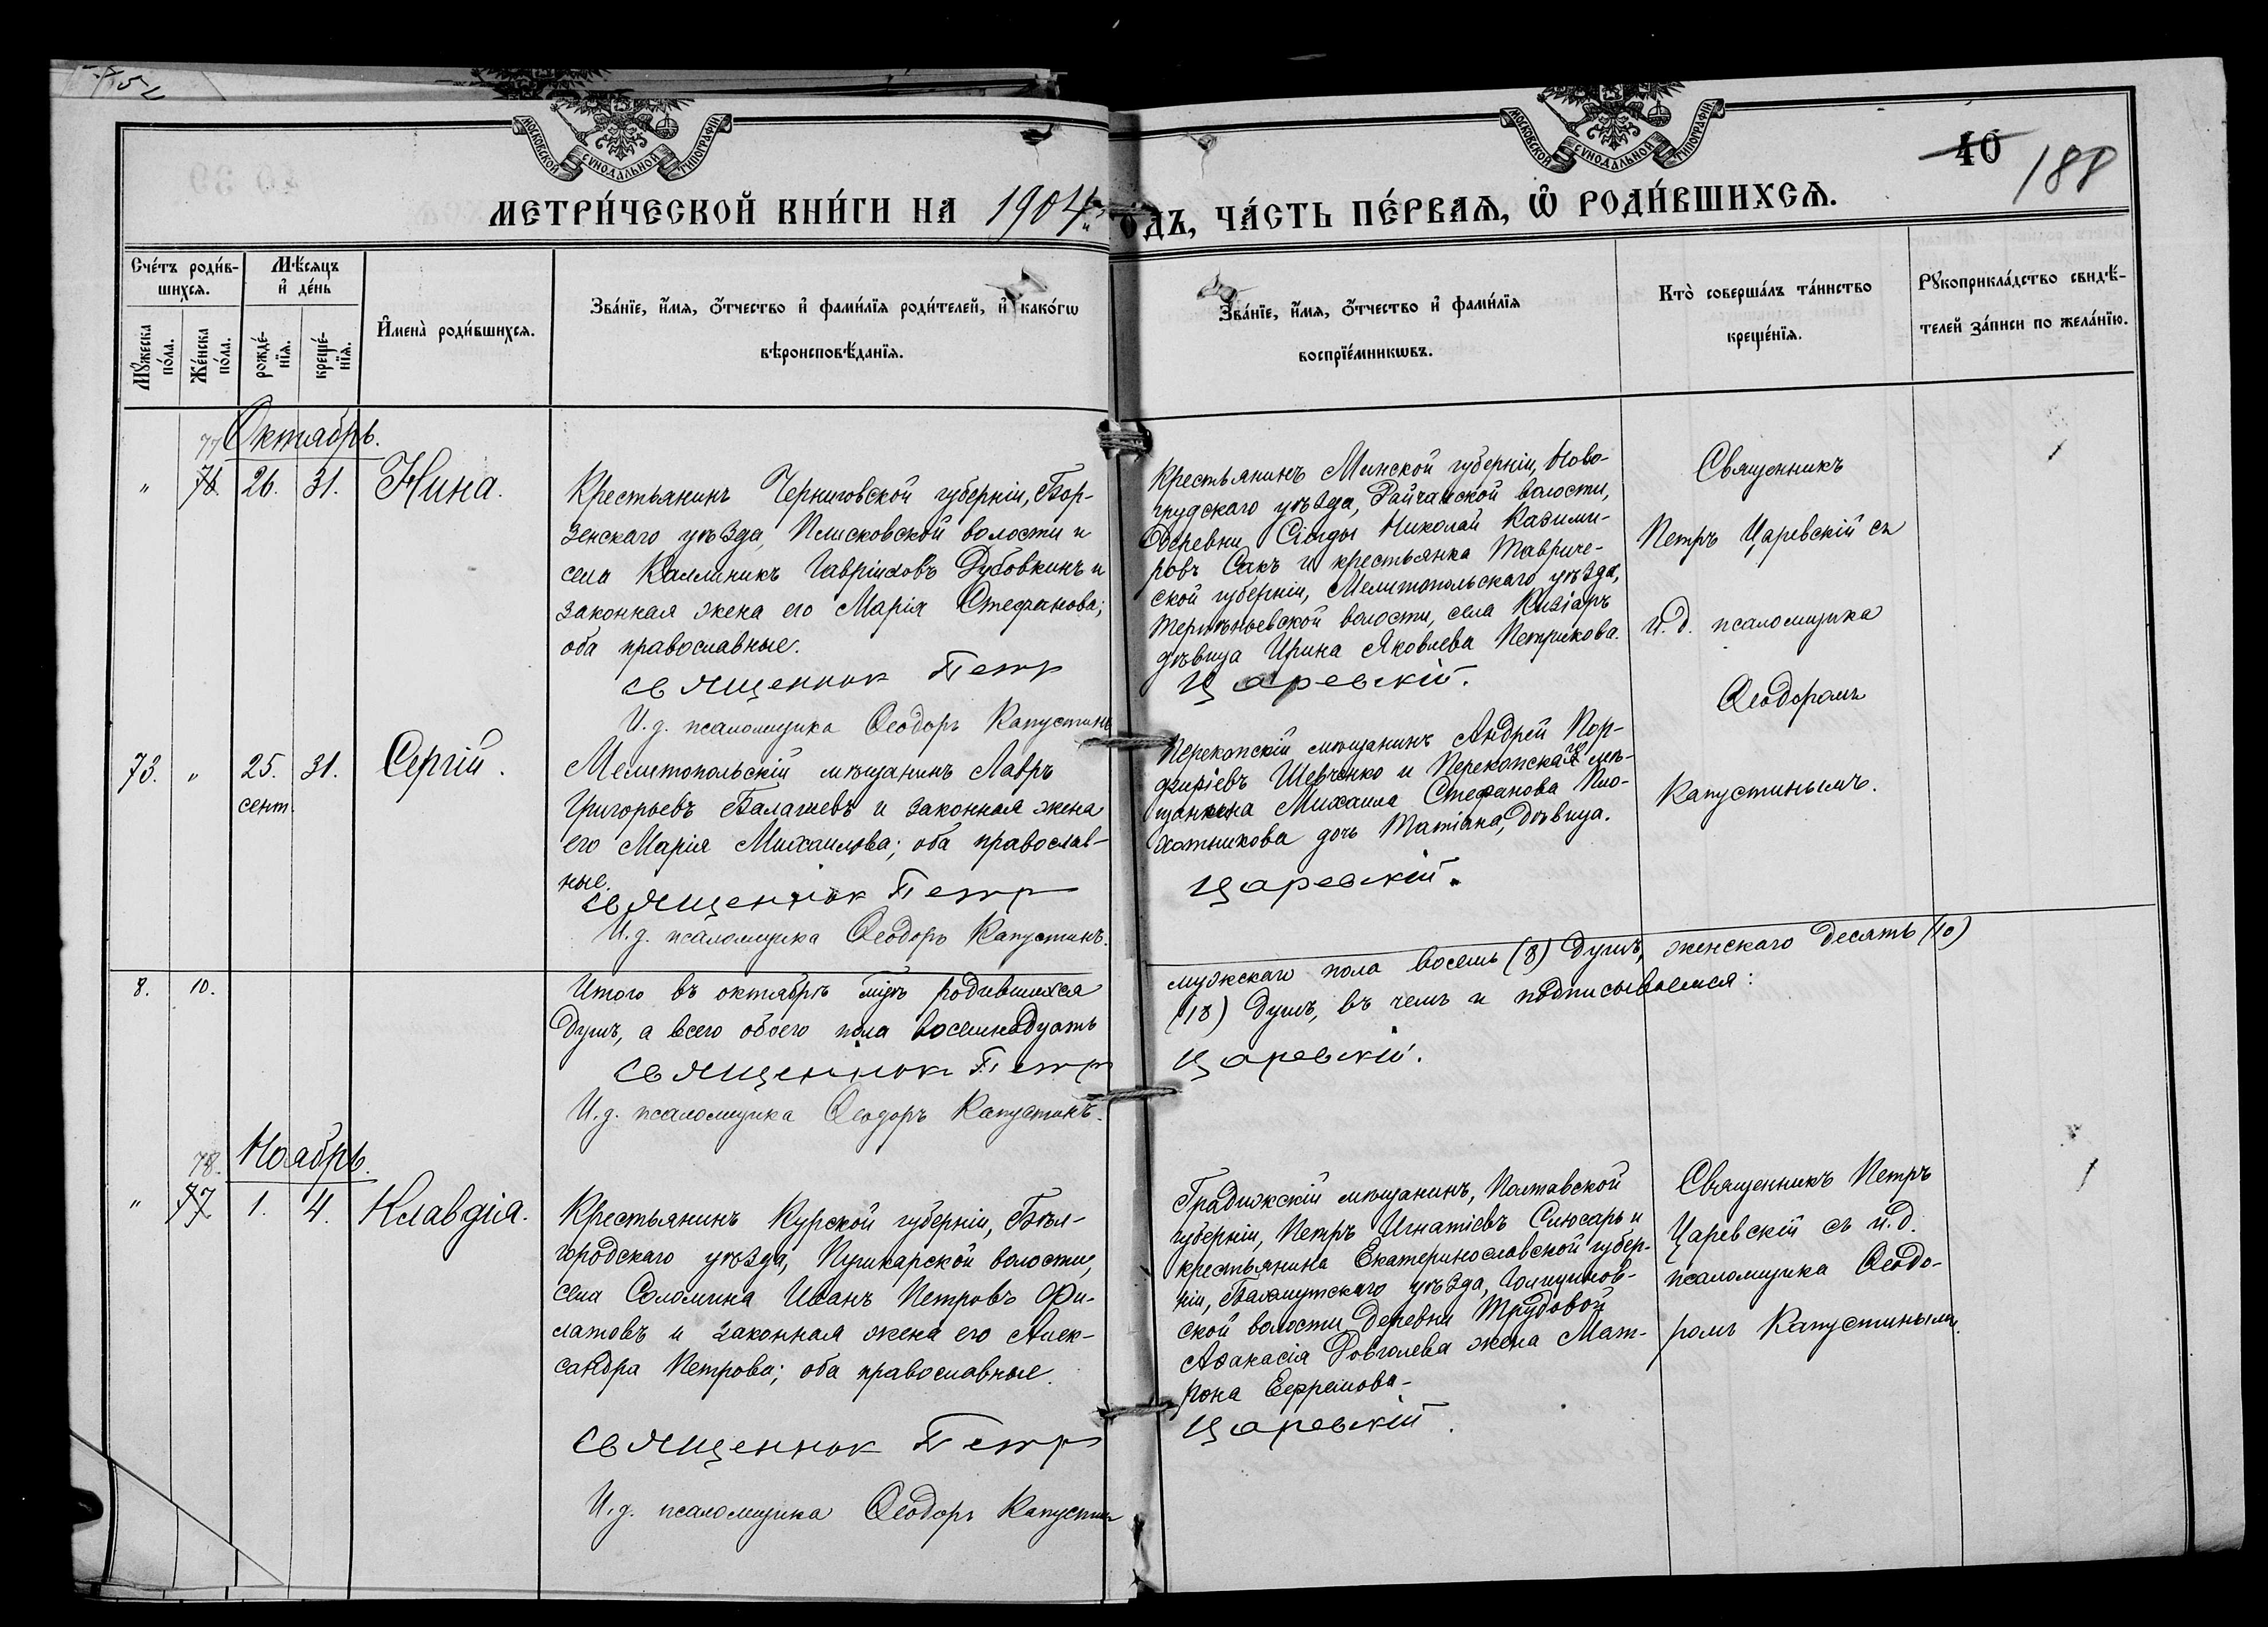 МОСКОВСКОЙ СѴНОДАЛЬНОЙ ТИПОГРАФІИ
МОСКОВСКОЙ СѴНОДАЛЬНОЙ ТИПОГРАФІИ
40
188
МЕТРИ́ЧЕСКОЙ КНИ́ГИ НА 1904 го́дъ, ЧА́СТЬ ПЕ́РВАѦ, Ѽ РОДИ́ВШИХСѦ.
Сче́тъ роди́в-
шихсѧ.
Мꙋ́жеска по́ла.
Же́нска по́ла.
Мѣ́сѧцъ
и҆ де́нь
рожде́-
нїѧ.
креще́-
нїѧ.
И҆мена̀ роди́вшихсѧ.
Зва́нїе, и҆́мѧ, ѻ҆́тчество и҆ фами́лїѧ роди́телей, и҆ како́гѡ
вѣроисповѣ́данїѧ.
Зва́нїе, и҆́мѧ, ѻ҆́тчество и҆ фами́лїѧ
воспрїе́мникѡвъ.
Кто̀ соверша́лъ та́инство
креще́нїѧ.
Рꙋкоприкла́дство свидѣ́-
телей за́писи по жела́нїю.
77 Октябрь.
" 76 26. 31. Нина.
Крестьянинъ Черниговской губерніи, Бор-
зенскаго уѣзда, Плисковской волости и
села Каллиникъ Гавріиловъ Дубовкинъ и
законная жена его Марія Стефанова;
оба православные.
священник Петр
И.д. псаломщика Ѳеодоръ Капустинъ
Крестьянинъ Минской губерніи, Ново-
грудскаго уѣзда, Райчанской волости,
деревни Николай Казими-
ровъ Сакъ и крестьянка Тавриче-
ской губерніи, Мелитопольскаго уѣзда,
Терпѣньевской волости, села Кизіаръ
дѣвица Ирина Яковлева Петрикова.
Царевскій.
Священникъ
Петръ Царевскій съ
и.д. псаломщика
Ѳеодоромъ
Капустинымъ.
73. " 25. 31. Сергій.
сент.
Мелитопольскій мѣщанинъ Лавръ
Григорьевъ Балагиевъ и законная жена
его Марія Михаилова; оба православ-
ные.
священник Петр
И.д. псаломщика Ѳеодоръ Капустинъ.
Перекопскій мѣщанинъ Андрей Пор-
фиріевъ Шевченко и Перекопская мѣ-
щанина Михаила Стефанова Пло-
хотникова дочь Татіана, дѣвица.
Царевскій.
8. 10.
Итого въ октябрѣ м-цѣ родившихся
мужскаго пола восемь (8) душъ, женскаго десять (10)
душъ, а всего обоего пола восемнадцать
(18) душъ, въ чемъ и подписываемся:
священник Петр
Царевскій.
И.д. псаломщика Ѳеодоръ Капустинъ.
78. Ноябрь.
" 77 1. 4. Клавдія.
Крестьянинъ Курской губерніи, Бѣл-
городскаго уѣзда, Пушкарской волости,
села Соломина Иванъ Петровъ Фи-
латовъ и законная жена его Алек-
сандра Петрова; оба православные.
священник Петр
И.д. псаломщика Ѳеодоръ Капустин
Градижскій мѣщанинъ, Полтавской
губерніи, Петръ Игнатіевъ Слюсарь и
крестьянина Екатеринославской губер-
ніи, Бахмутскаго уѣзда, Голицинов-
ской волости деревни Трудовой
Аѳанасія Довголева жена Мат-
рона Ефремова.
Царевскій.
Священникъ Петръ
Царевскій съ и.д.
псаломщика Ѳеодо-
ромъ Капустинымъ.